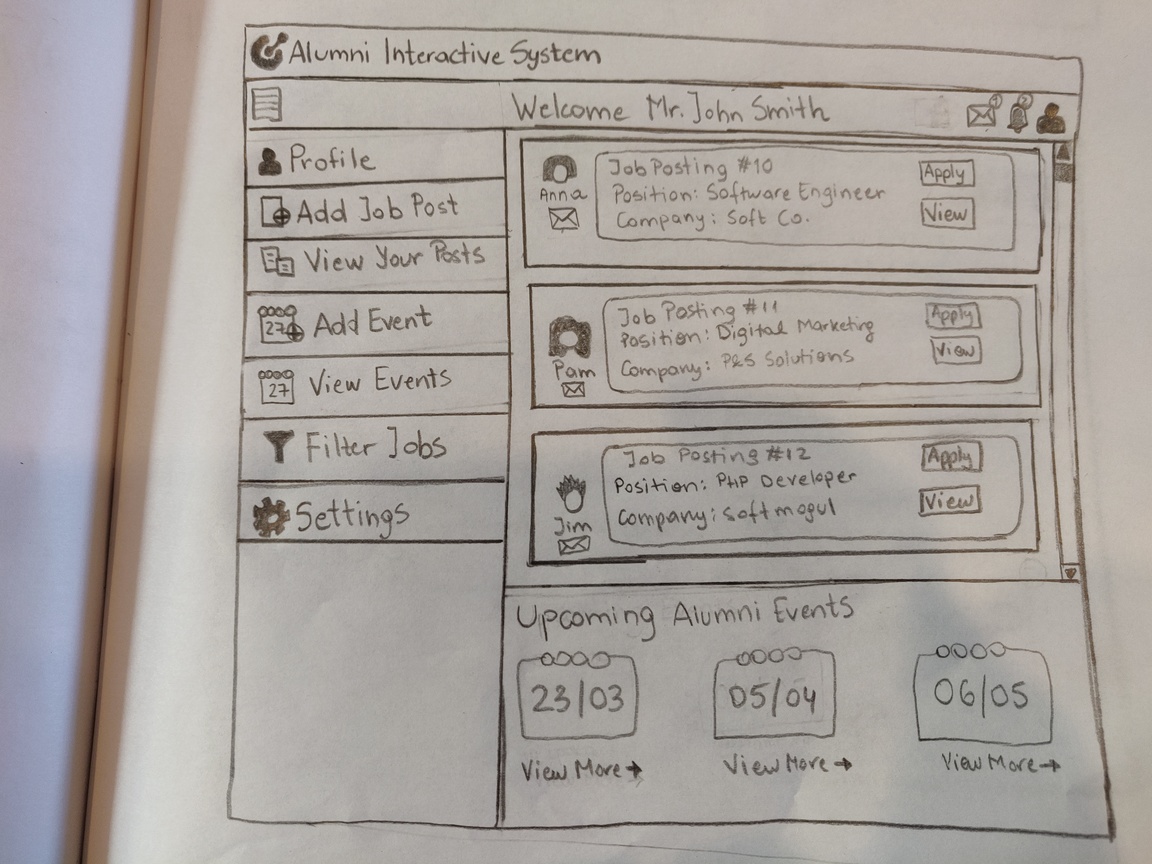 Alumni Interactive System
Welcome Mr. John Smith
1
2
Profile
Add Job Post
View Your Posts
27
Add Event
27
View Events
Filter Jobs
Settings
Anna
Job Posting #10
Position: Software Engineer
Company: Soft Co.
Apply
View
Pam
Job Posting #11
Position: Digital Marketing
Company: P&S Solutions
Apply
View
Jim
Job Posting #12
Position: PHP Developer
Company: Softmogul
Apply
View
Upcoming Alumni Events
23/03
05/04
06/05
View More →
View More →
View More →